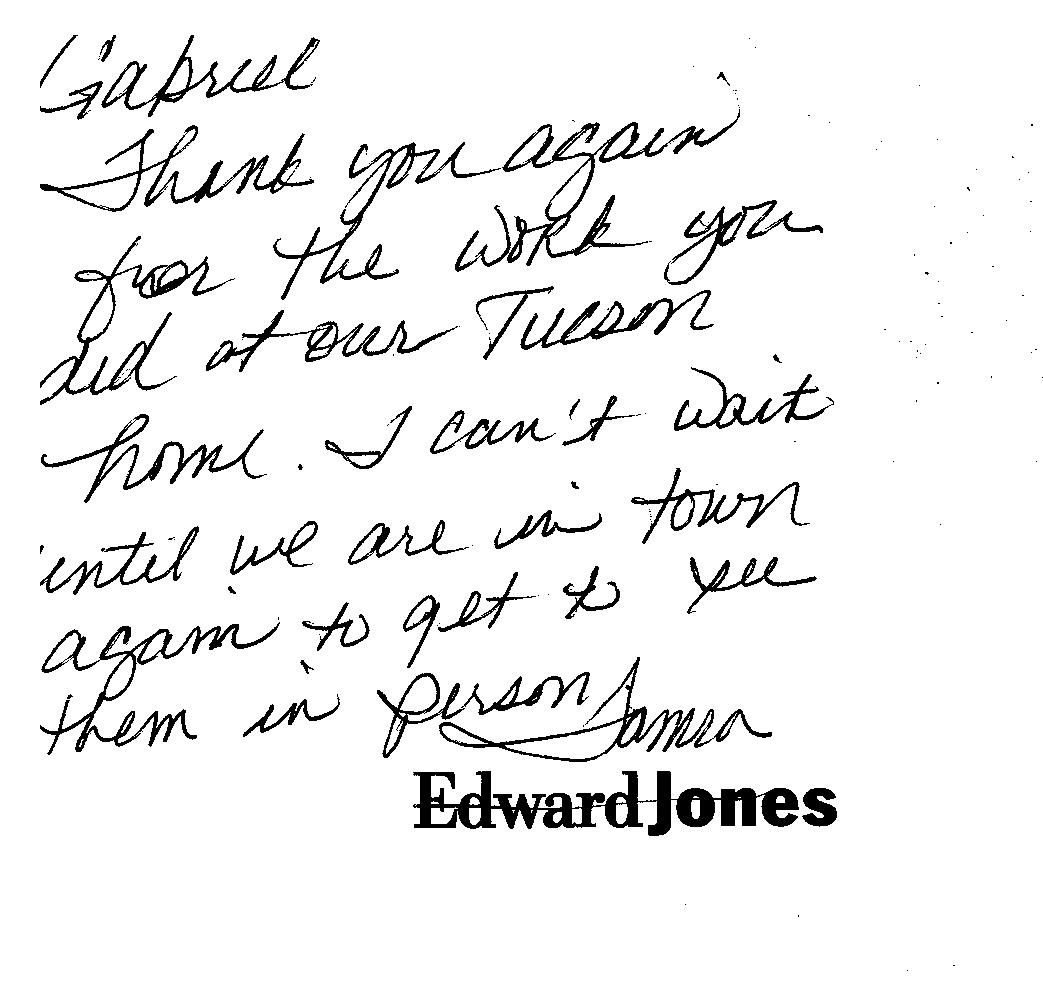 Gabriel
Thank you again
for the work you
did at our Tucson
home. I can't wait
until we are in town
again to get to see
them in person
Edward Jones